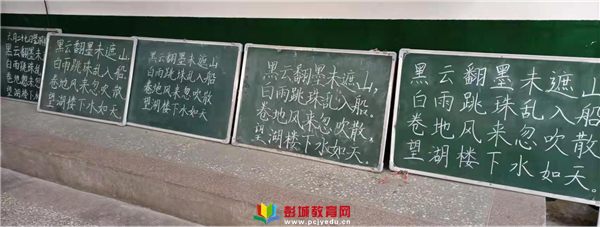 六月二十七日望湖
黑云翻墨未
白雨跳珠乱
卷地
望湖楼下
黑云翻墨未遮山,
白雨跳珠乱入船。
卷地风来忽吹散,
望湖楼下水如天。
黑云翻墨未遮山,
白雨跳珠乱入船。
卷地风来忽吹散
望湖楼下水如天。
黑云翻墨未遮山,
白雨跳珠乱入船。
卷地风来忽吹散,
望湖楼下水如天。
黑云翻墨未遮山,
白雨跳珠乱入船
卷地风来忽吹散。
望湖楼下水如天。
彭城教育网
www.pcjyedu.cn